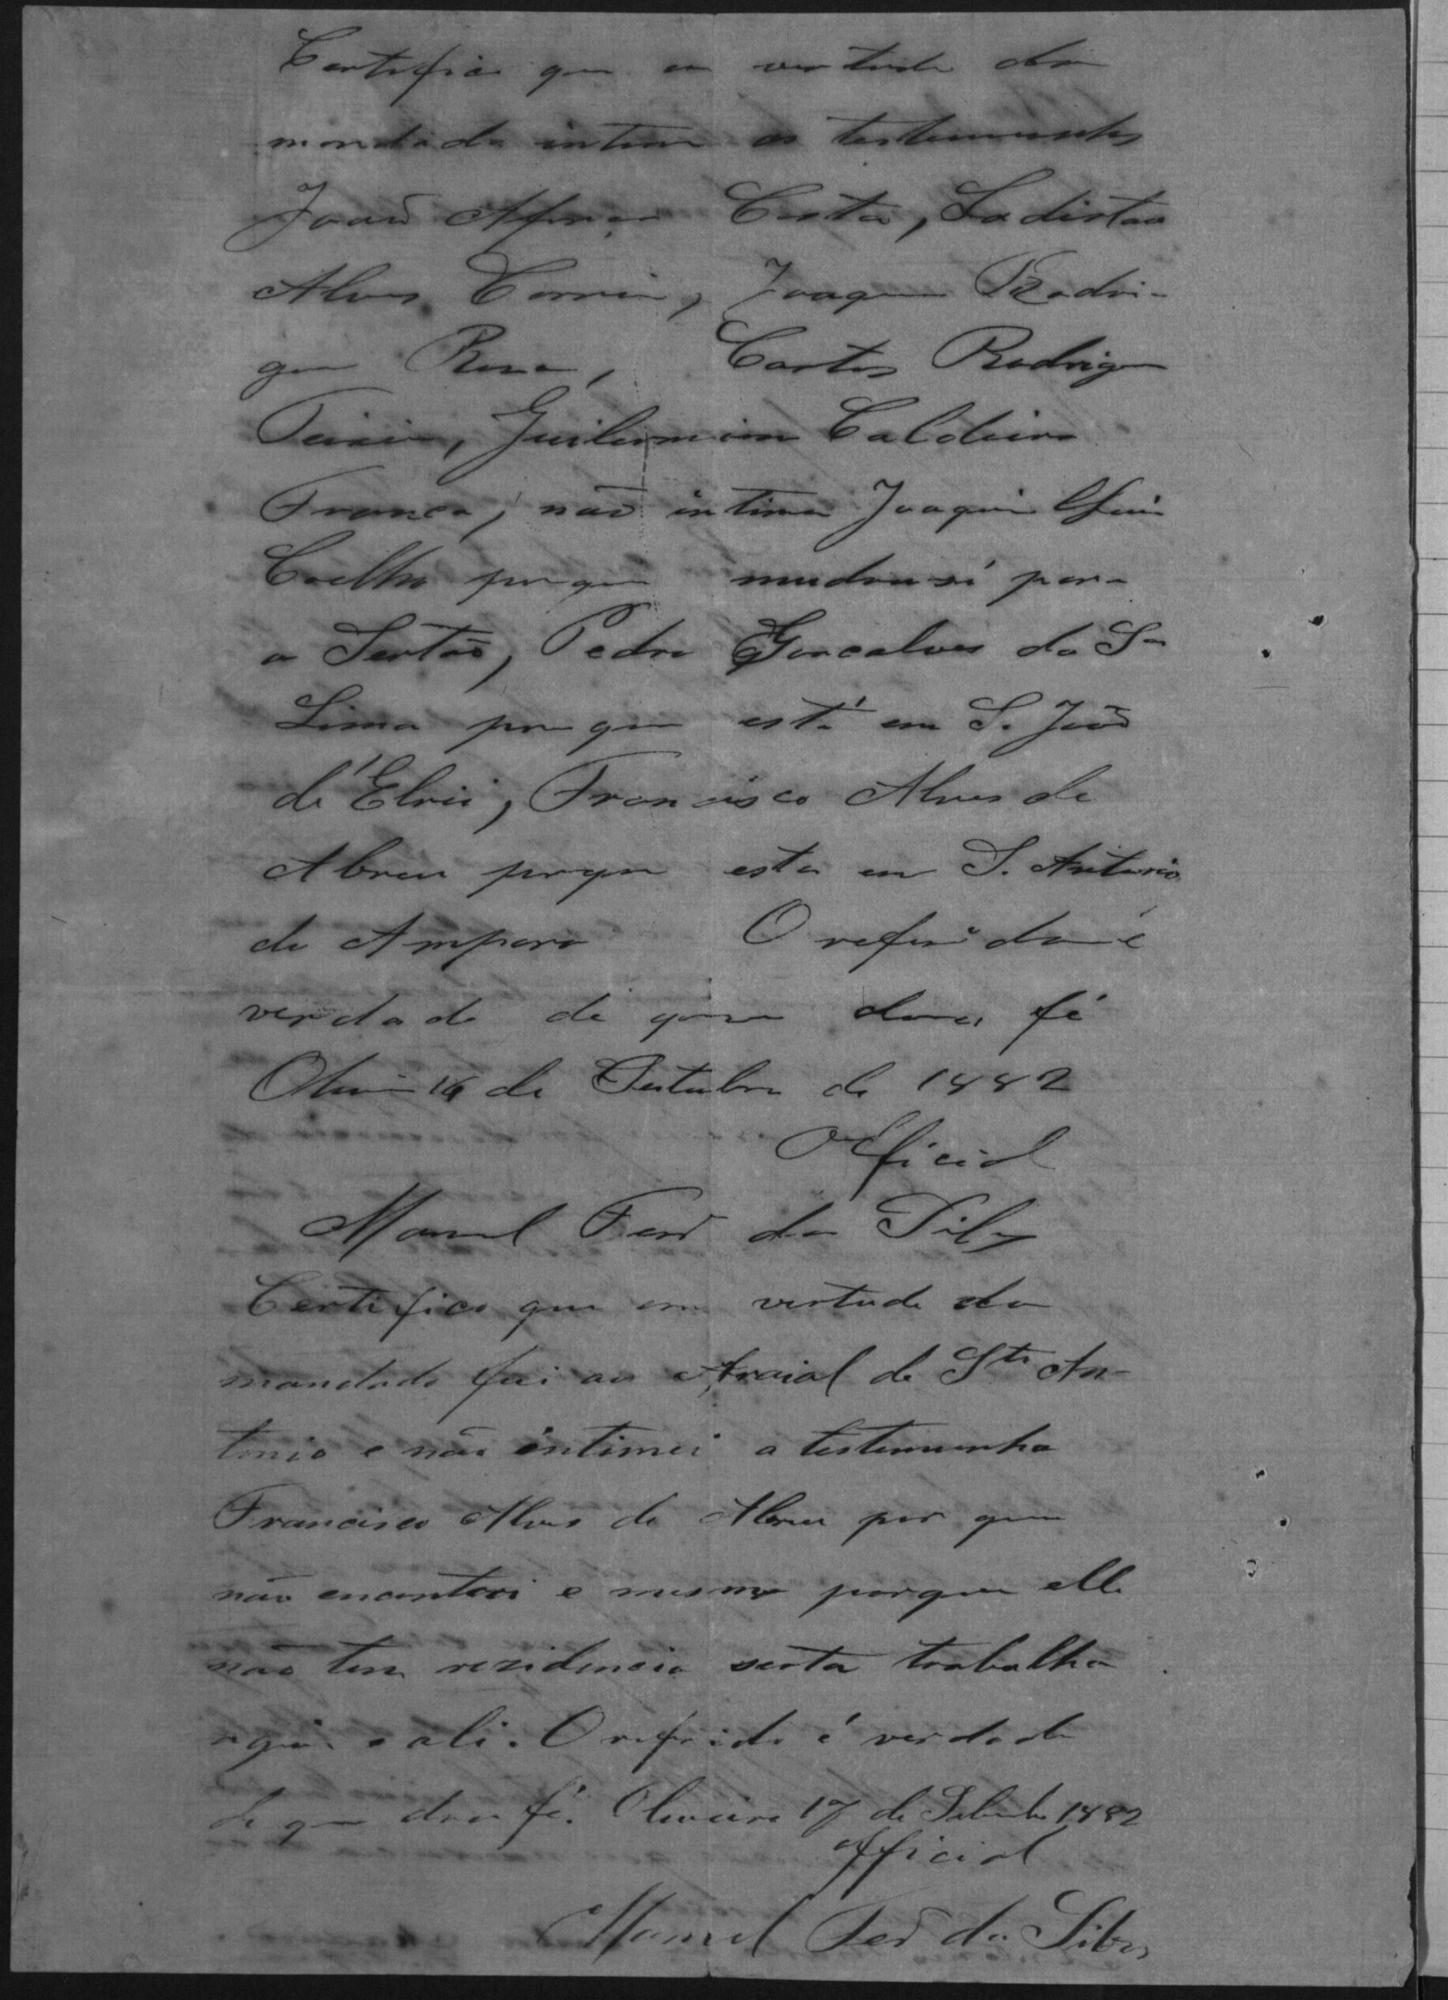 Certifico que em vertude do
mandado intimei as testemunhas
João Afonço Costa, Ladislao
Alves Correia, Joaquim Rodri-
gues Rosa, Carlos Rodrigues
Guilermina Caldeira
Franca, não intimei Joaquim
Coelho porque mudou sí para
o Sertão, Pedro Gonçalves da Sa
Lima por que está em S. João
d'El rei, Francisco Alves de
Abreu porque esta em S. Antonio
do Amparo O referido é
verdade de que dou fé
Olivra 16 de Outubro de 1882
Official
Manoel Ferr da Silva
Certifico que em vertude do
mandado fui ao Arraial de Sto An-
tonio e não intimei a testemunha
Francisco Alves de Abreu por que
não encontrei e mesmo porque elle
não tem rezidencia serta trabalha
aqui e ali. O referido é verdade
de que dou fé. Oliveira 17 de 1882
Official
Manoel Ferr da Silva